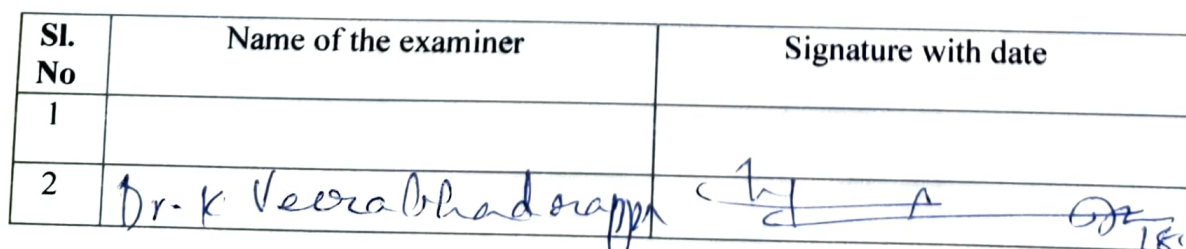 Sl. No Name of the examiner Signature with date
1
2 Dr. K Veerabhadrappa